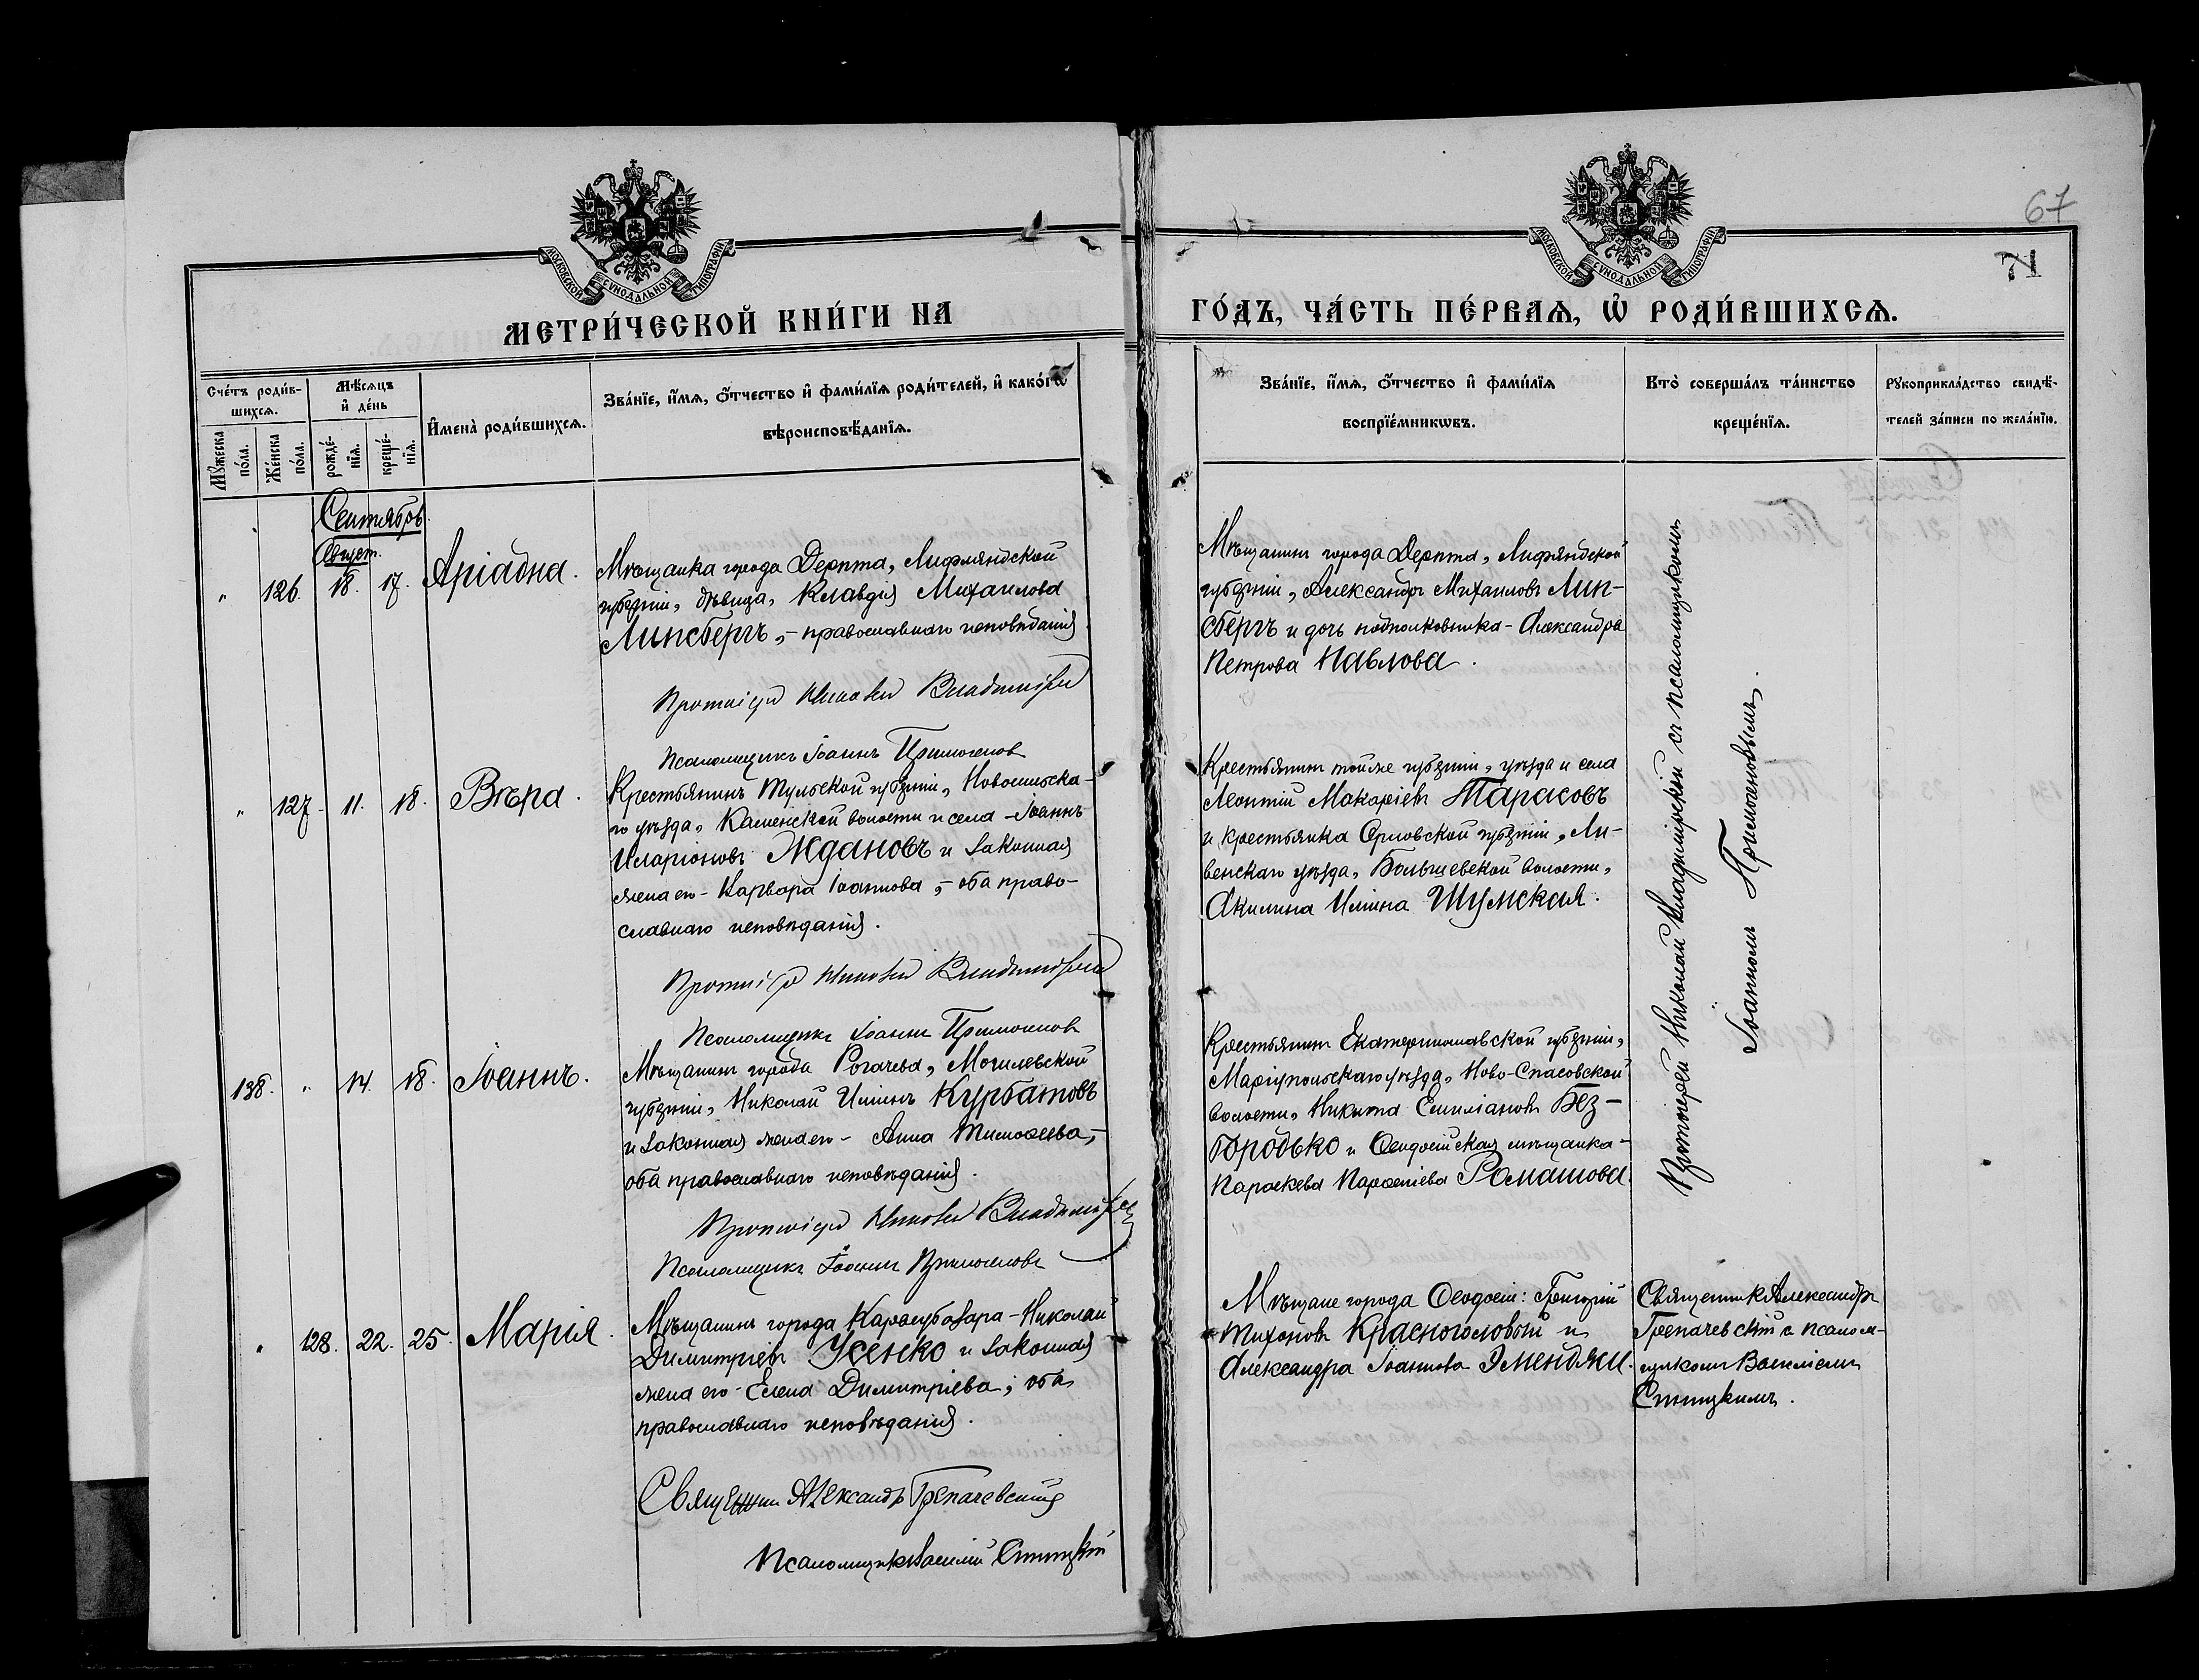 67
71
МОСКОВСКОЙ СѴНОДАЛЬНОЙ ТИПОГРАФІИ
МОСКОВСКОЙ СѴНОДАЛЬНОЙ ТИПОГРАФІИ
МЕТРИ́ЧЕСКОЙ КНИ́ГИ НА
ГО́ДЪ, ЧА́СТЬ ПЕ́РВАѦ, Ѡ҆ РОДИ́ВШИХСѦ.
Сче́тъ роди́в-
шихсѧ.
Мѣ́сѧцъ
и҆ де́нь
Мꙋ́жеска
по́ла.
Же́нска
по́ла.
рожде́-
нїѧ.
креще́-
нїѧ.
И҆мена̀ роди́вшихсѧ.
Зва́нїе, и҆́мѧ, ѻ҆́тчество и҆ фами́лїѧ роди́телей, и҆ како́гѡ
вѣроисповѣ́данїѧ.
Зва́нїе, и҆́мѧ, ѻ҆́тчество и҆ фами́лїѧ
воспрїе́мникѡвъ.
Кто̀ соверша́лъ та́инство
креще́нїѧ.
Рꙋкоприкла́дство свидѣ́-
телей за́писи по жела́нїю.
Сентябрь.
Август.
" 126. 18. 17. Аріадна.
Мѣщанка города Дерпта, Лифляндской
губерніи, дѣвица, Клавдія Михаилова
Линсбергъ, - православнаго исповѣданія
Протоіерей Николай Владимірскій
Псаломщикъ Іоаннъ Примогеновъ
Мѣщанинъ города Дерпта, Лифляндской
губерніи, Александръ Михаиловъ Лин-
сбергъ и дочь подполковника - Александра
Петрова Павлова.
" 127. 11. 18. Вѣра.
Крестьянинъ Тульской губерніи, Новосильска-
го уѣзда, Каменской волости и села - Іоаннъ
Иларіоновъ Ждановъ и законная
жена его - Варвара Іоаннова, - оба право-
славнаго исповѣданія.
Протоіерей Николай Владимірскій
Псаломщикъ Іоаннъ Примогеновъ
Крестьянинъ той же губерніи, уѣзда и села
Леонтій Макаріевъ Тарасовъ
и крестьянка Орловской губерніи, Ли-
венскаго уѣзда, волости,
Акилина Ильина Шумская.
138. " 14. 18. Іоаннъ.
Мѣщанинъ города Рогачева, Могилевской
губерніи, Николай Ильинъ Курбатовъ
и законная жена его - Анна Тимоѳеева, -
оба православнаго исповѣданія.
Протоіерей Николай Владимірскій
Псаломщикъ Іоаннъ Примогеновъ
Крестьянинъ Екатеринославской губерніи,
Маріупольскаго уѣзда, Ново-Спасовской
волости, Никита Емиліановъ Без-
бородько и Ѳеодосійская мѣщанка -
Параскева Парѳеніева Ромашова.
Протоіерей Николай Владимірскій съ псаломщикомъ
Іоанномъ Примогеновымъ.
" 128. 22. 25. Марія.
Мѣщанинъ города Карасубазара - Николай
Димитріевъ Усенко и законная
жена его - Елена Димитріева; оба
православнаго исповѣданія.
Священникъ Александръ Трепачевскій
Псаломщикъ Василій
Мѣщане города Ѳеодосіи: Григорій
Тихоновъ Красноголовый и
Александра Іоаннова Эменджи.
Священникъ Александръ
Трепачевскій съ псалом-
щикомъ Василіемъ